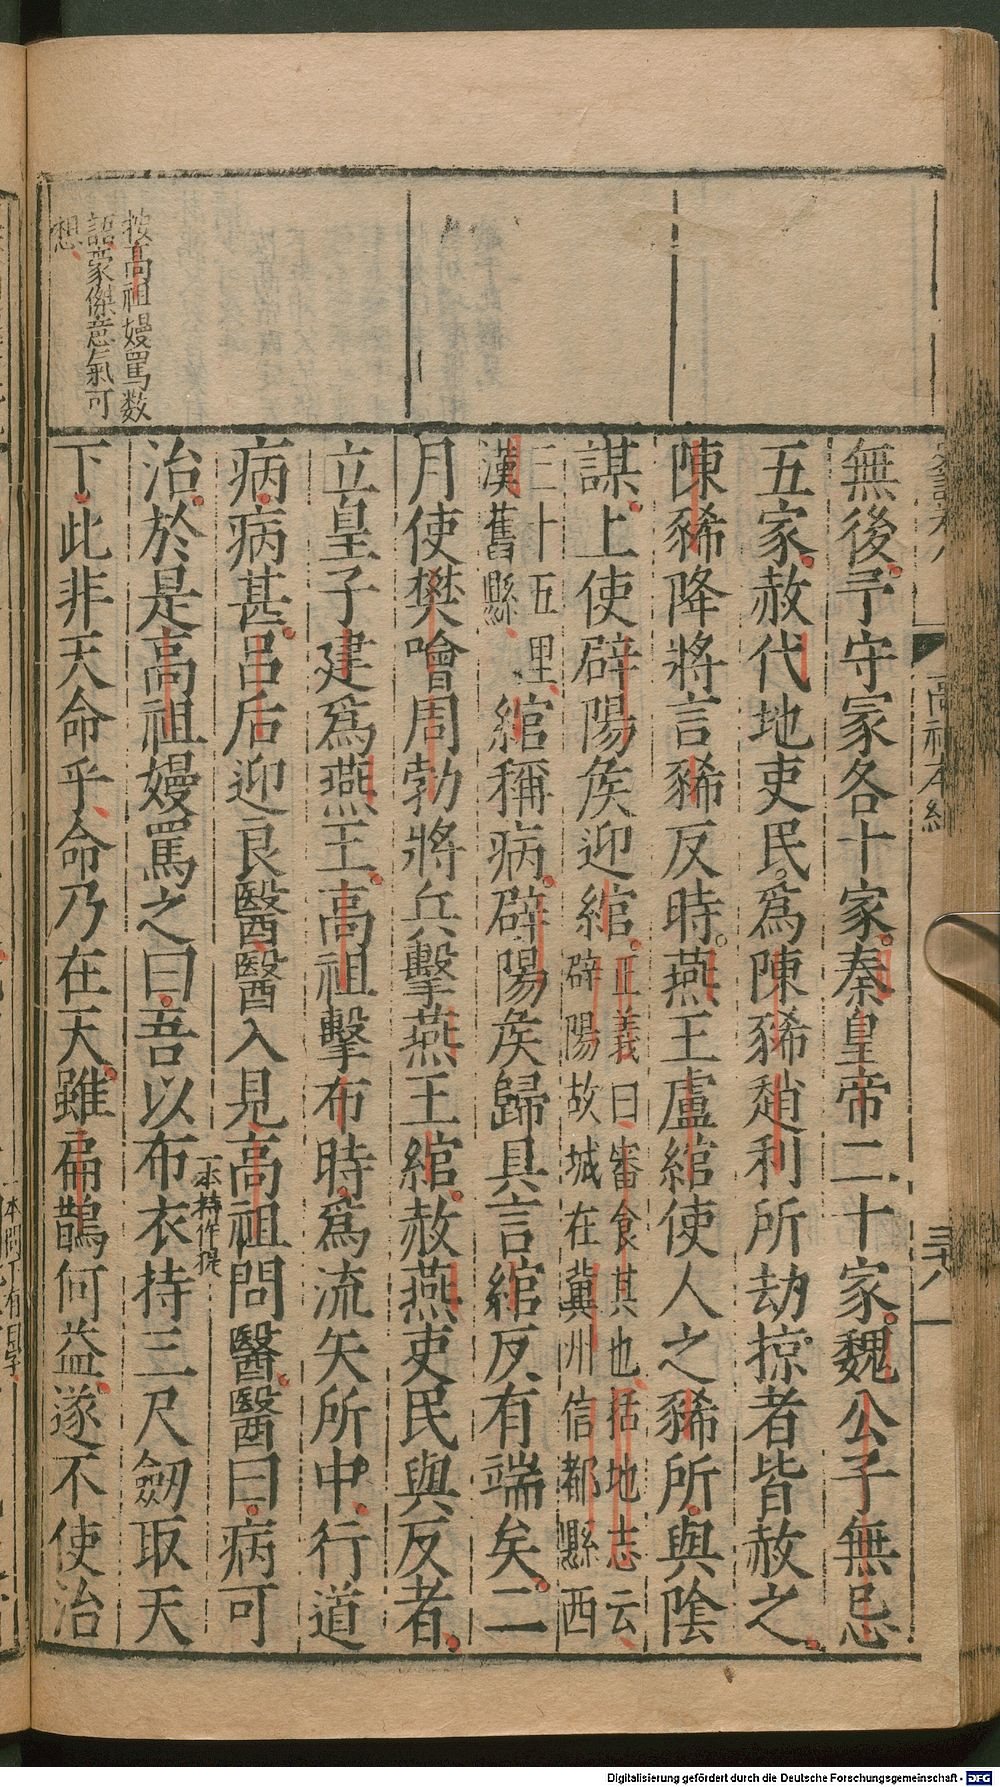 無後予守冢各十家秦皇帝二十家魏公子無忌
五家赦代地吏民爲陳豨趙利所劫掠者皆赦之
陳豨降將言豨反時燕王盧綰使人之豨所與陰
謀上使辟陽矦迎綰正義曰審食其也括地志云
辟陽故城在冀州信都縣西
三十五里
漢舊縣
綰稱病辟陽矦歸具言綰反有端矣二
月使樊噲周勃將兵擊燕王綰赦燕吏民與反者
立皇子建爲燕王高祖擊布時爲流矢所中行道
病病甚呂后迎良醫醫入見高祖問醫醫曰病可
治於是高祖嫚罵之曰吾以布衣持三尺劒取天
一本持作提
下此非天命乎命乃在天雖扁鵲何益遂不使治
按高祖嫚罵数
語豪傑意氣可
想
高祖本紀
Digitalisierung gefördert durch die Deutsche Forschungsgemeinschaft - DFG